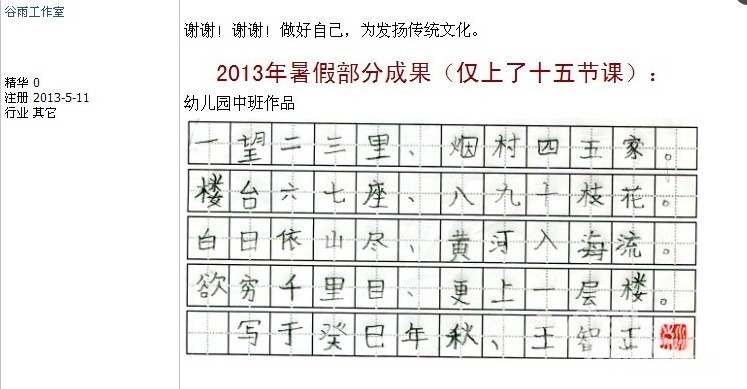 谷雨工作室
精华 0
注册 2013-5-11
行业 其它
谢谢！谢谢！做好自己，为发扬传统文化。
2013年暑假部分成果（仅上了十五节课）：
幼儿园中班作品
一望二三里、烟村四五家。
楼台六七座、八九十枝花。
白日依山尽、黄河入海流。
欲穷千里目、更上一层楼。
写于癸巳年秋、王智正